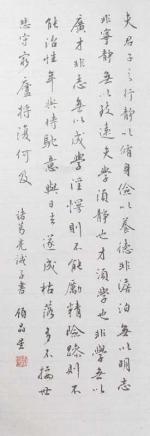 夫君子之行靜以脩身儉以養德非澹泊無以明志
非寧靜無以致遠夫學須靜也才須學也非學無以
廣才非志無以成學淫慢則不能勵精險躁則不
能治性年與時馳意與日去遂成枯落多不接世
悲守窮廬將復何及
諸葛亮誡子書